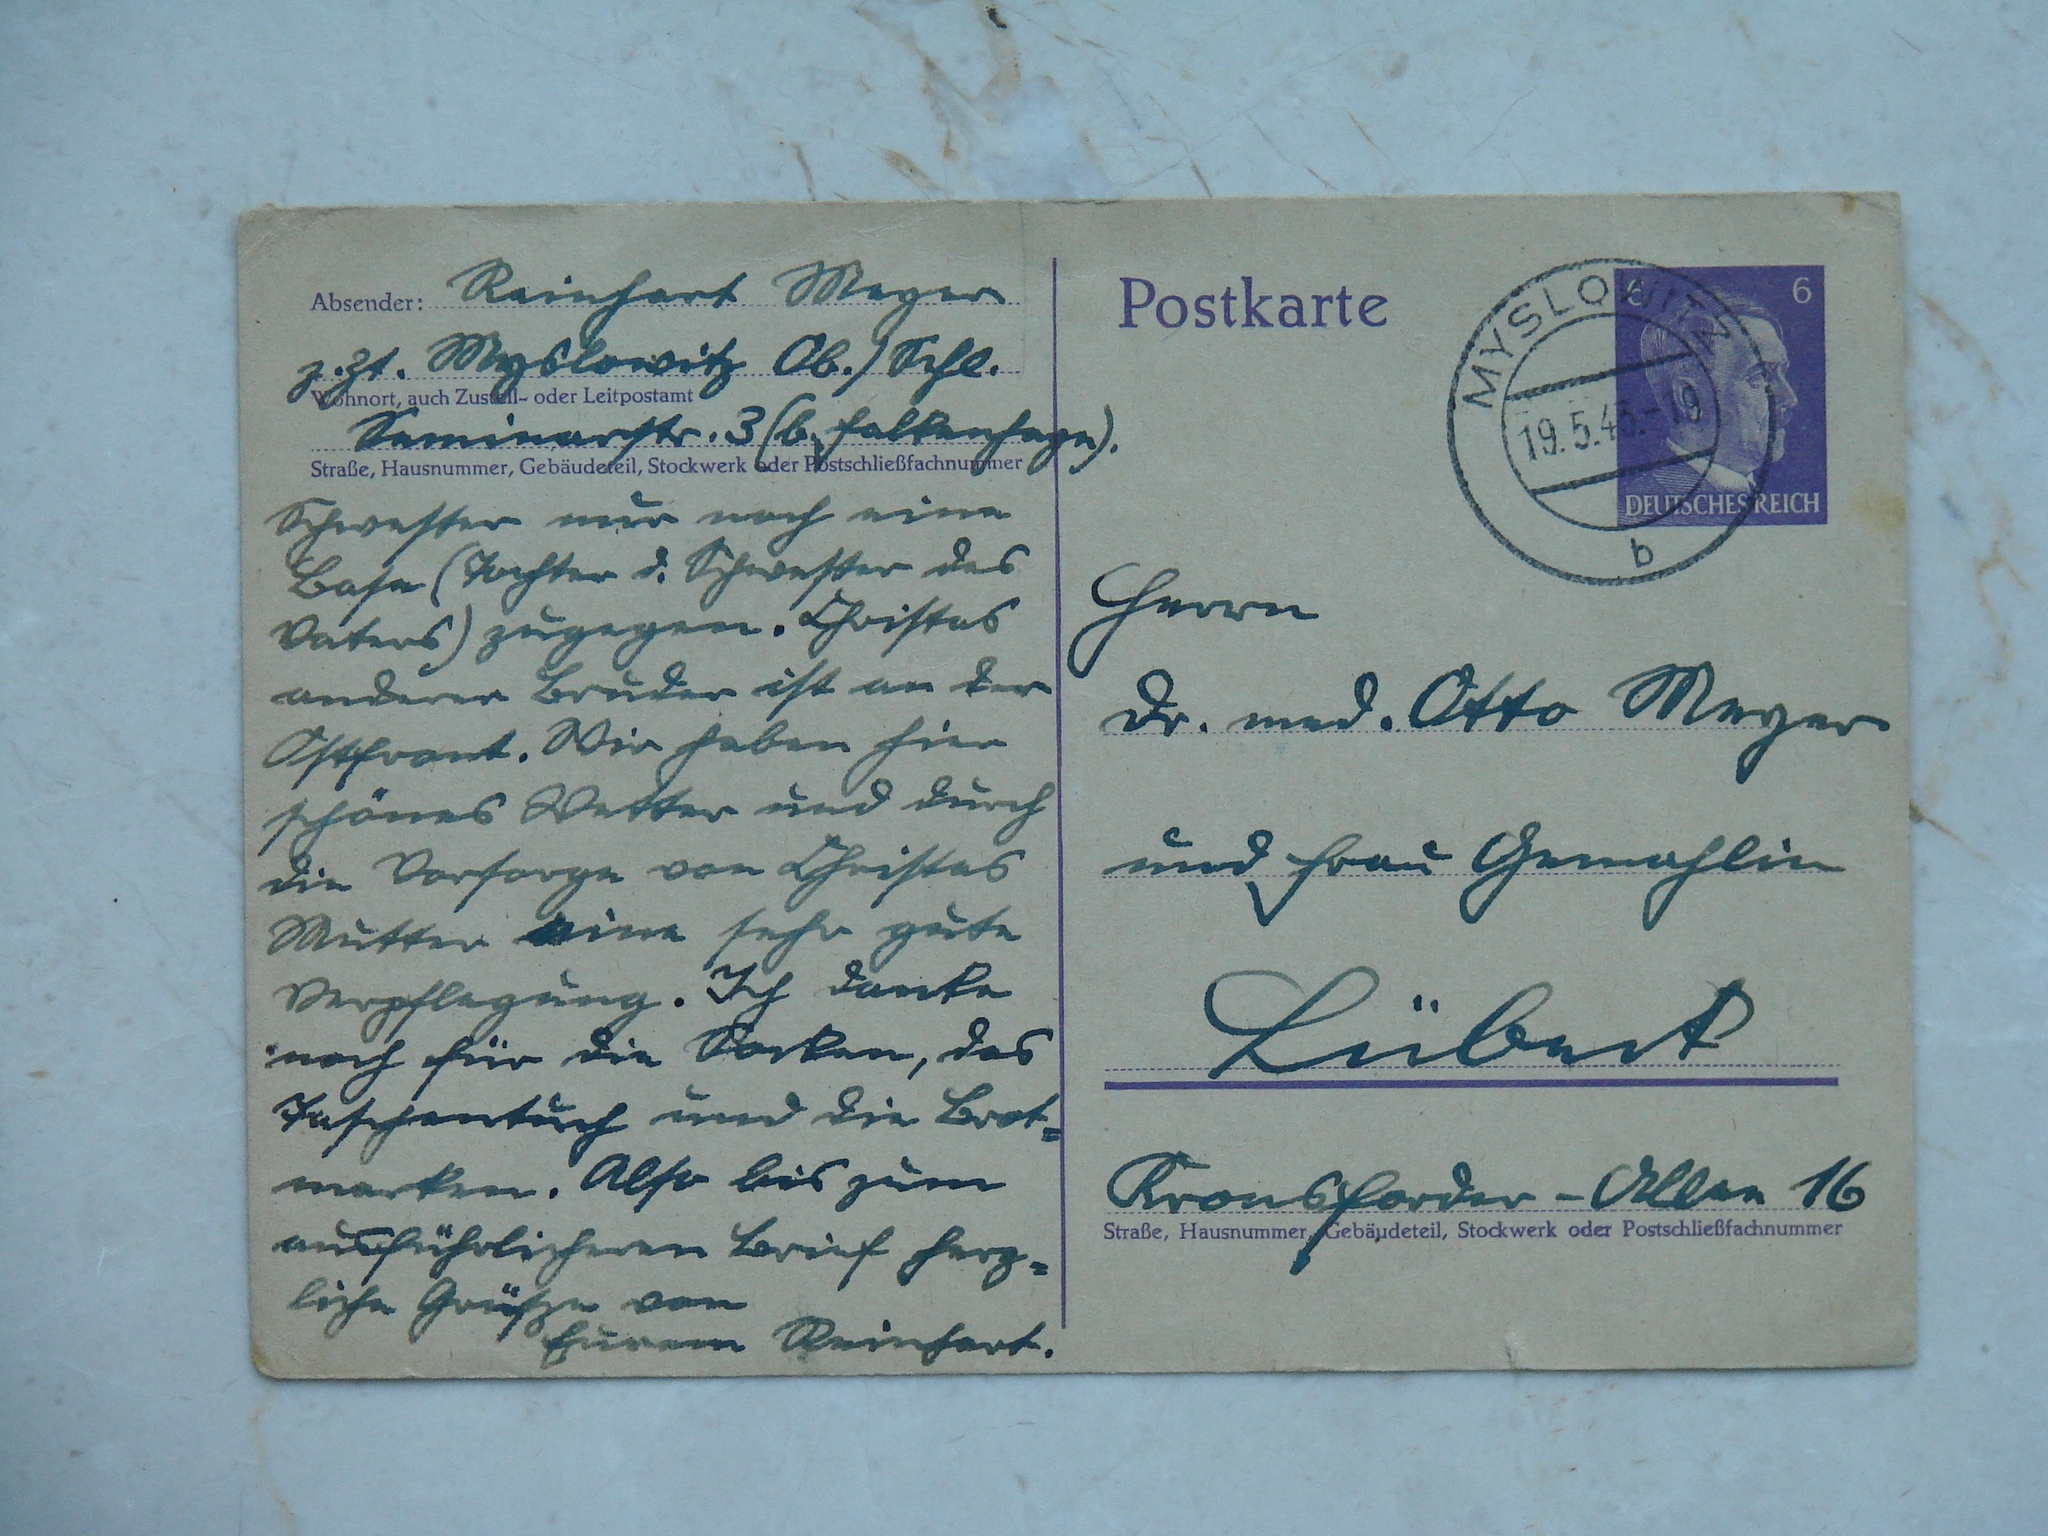 Absender: Reinhart Meyer
z. Zt. Myslowitz Ob./Schl.
Wohnort, auch Zustell- oder Leitpostamt
Seminarstr. 3 (b. Falkenhagen).
Straße, Hausnummer, Gebäudeteil, Stockwerk oder Postschließfachnummer
Schwester nur noch eine
Base (Tochter d. Schwester des
Vaters) zugegen. Christas
anderer Bruder ist an der
Ostfront. Wir haben hier
schönes Wetter und durch
die Vorsorge von Christas
Mutter eine sehr gute
Verpflegung. Ich danke
noch für die Socken, das
Taschentuch und die Brot=
marken. Also bis zum
ausführlicheren Brief herz=
liche Grüße von
Eurem Reinhart.
Postkarte
6 6
DEUTSCHES REICH
MYSLOWITZ
19.5.43.-19
b
Herrn
Dr. med. Otto Meyer
und Frau Gemahlin
Lübeck
Kronsforder-Allee 16
Straße, Hausnummer, Gebäudeteil, Stockwerk oder Postschließfachnummer